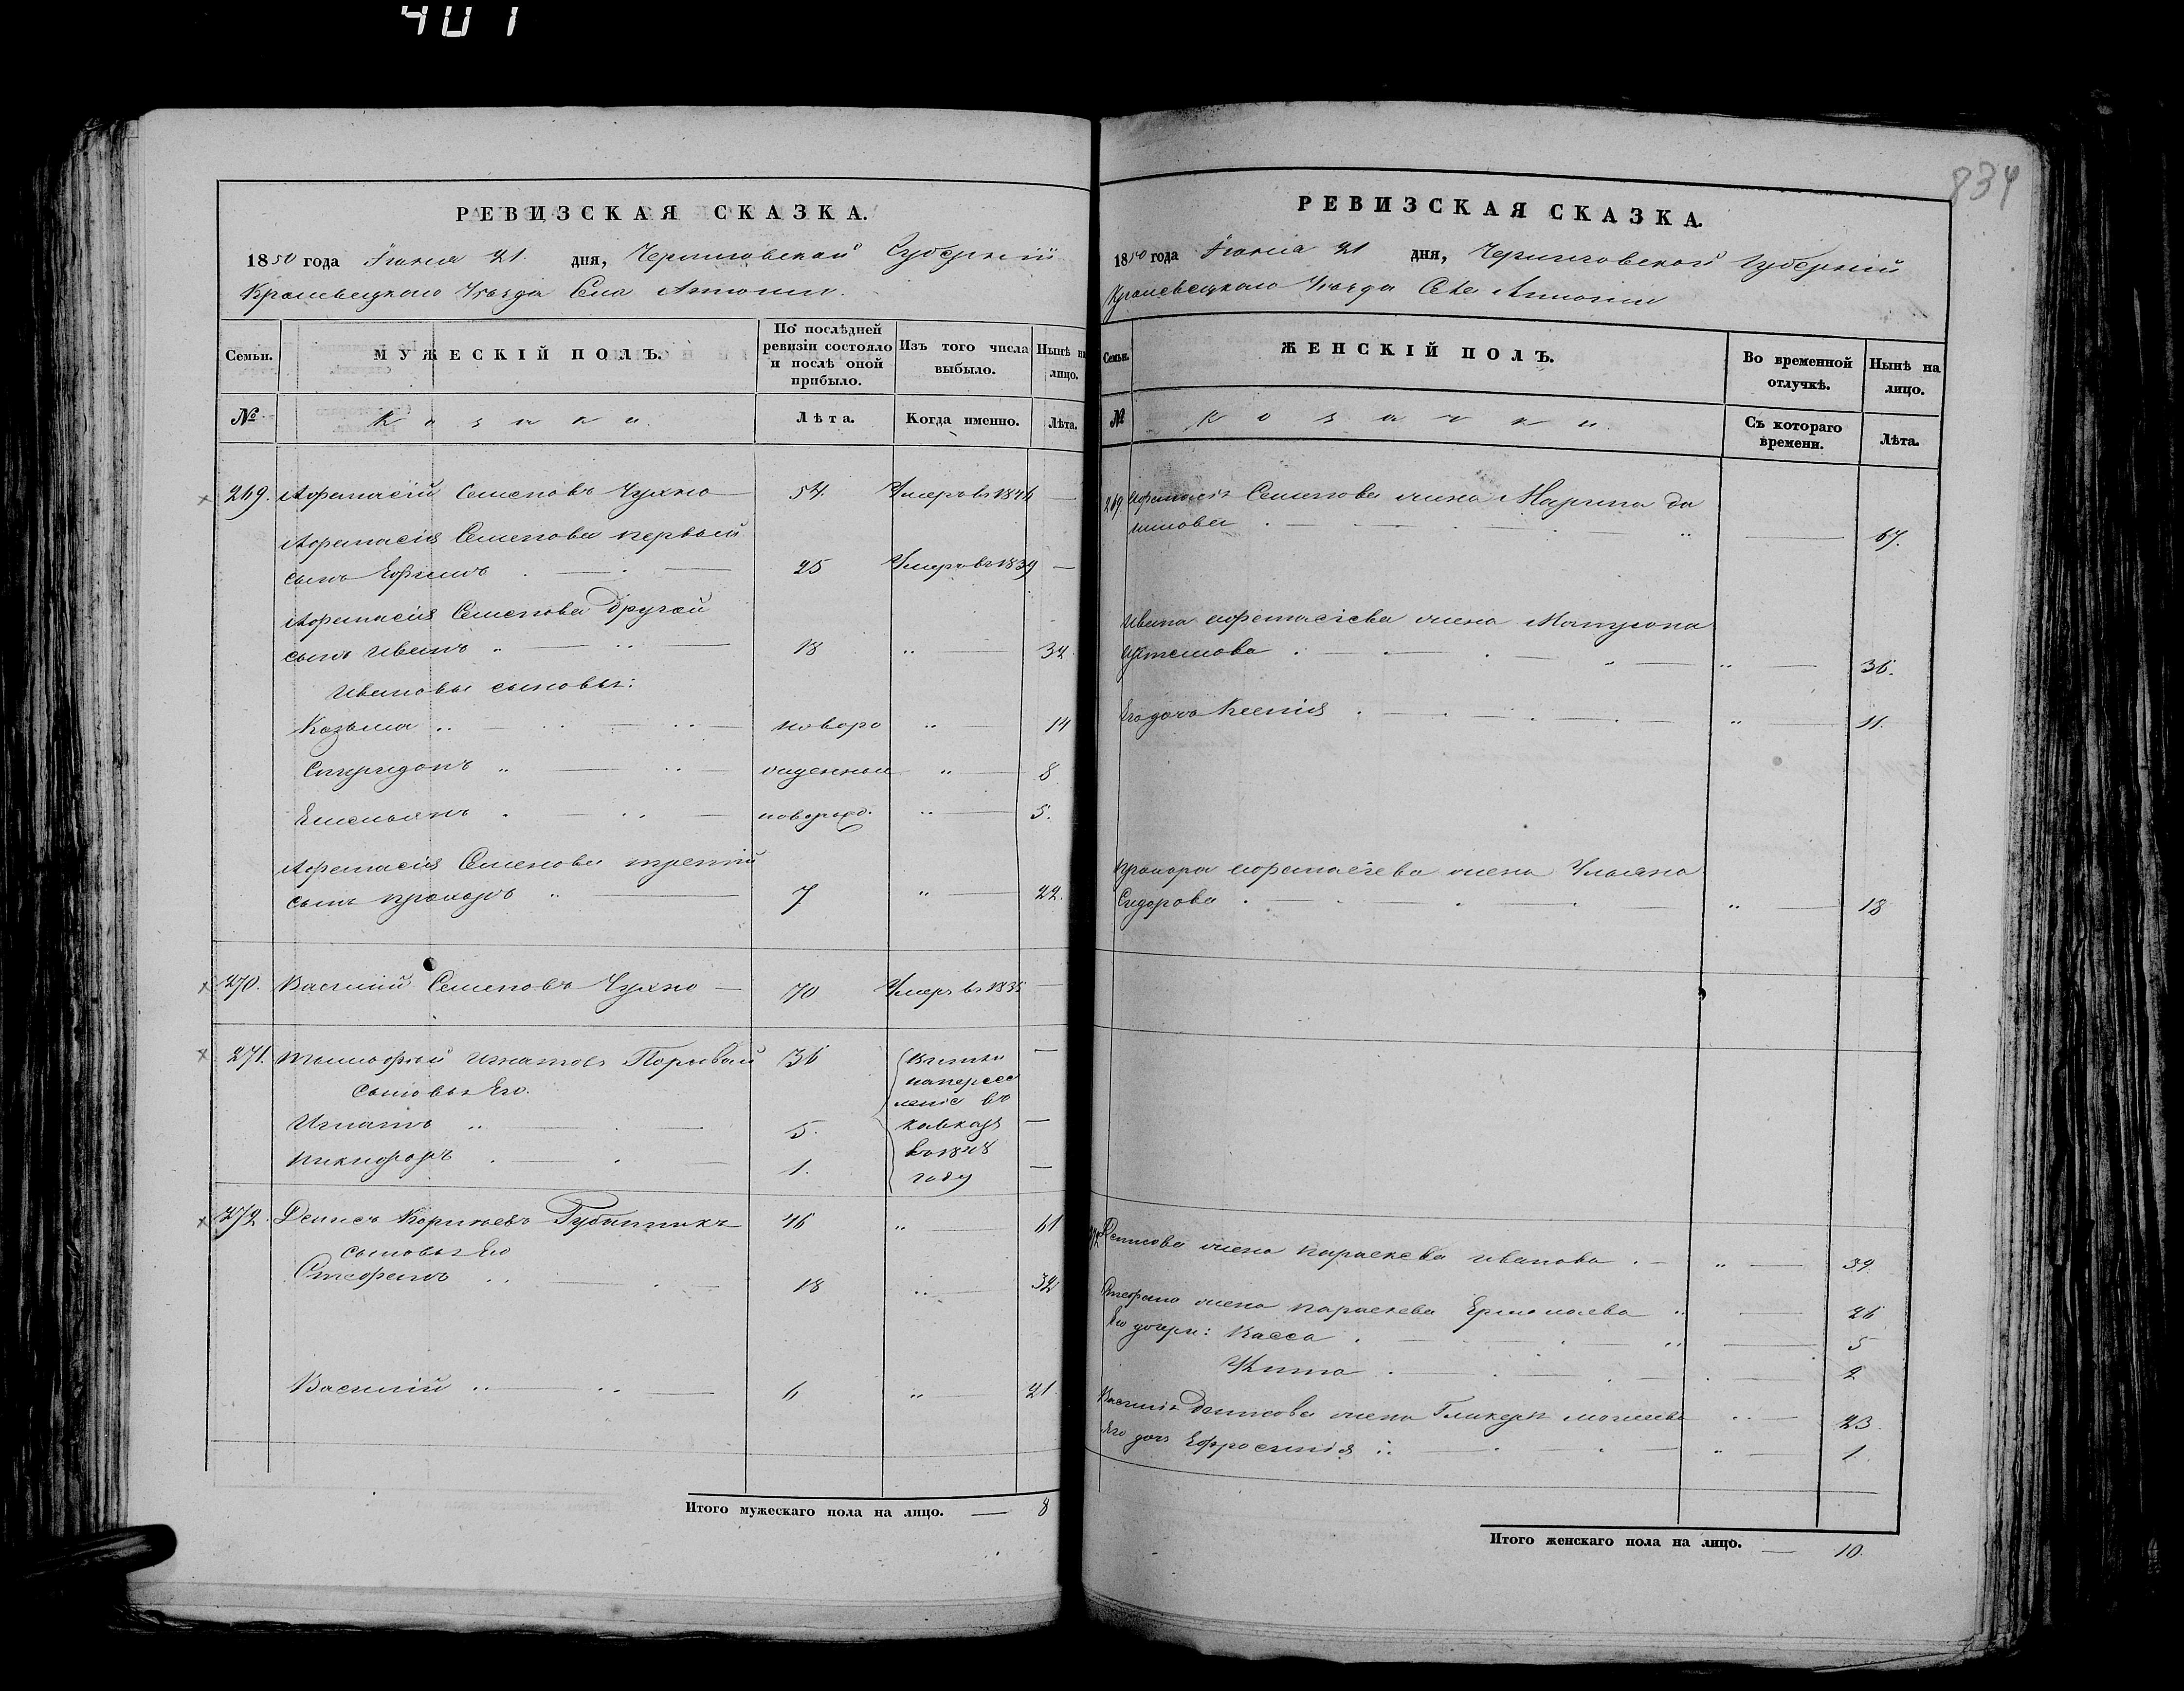 401
834
РЕВИЗСКАЯ СКАЗКА.
1850 года Іюня 21 дня, Черниговской Губерніи
Кролевецкаго Уѣзда Села
Семьи.
МУЖЕСКІЙ ПОЛЪ.
По послѣдней ревизіи состояло и послѣ оной прибыло.
Изъ того числа выбыло.
Нынѣ на лицо.
№
Козаки.
Лѣта.
Когда именно.
Лѣта.
269. Афанасій Семеновъ Чухно 54 Умеръ в 1844 —
Афанасія Семенова первый
сынъ Ефимъ 25 Умеръ в 1839 —
Афанасія Семенова другой
сынъ Иванъ 18 " 34
Ивановы сыновья:
Козьма новоро " 14
Спиридонъ жденный " 8
Емельянъ новорожд. " 5.
Афанасія Семенова третій
сынъ Прохоръ 7 " 22.
270. Василій Семеновъ Чухно — 70 Умеръ в 1835 —
271. Игнатовъ 36 —
сыновья Его.
Игнатъ 5. —
Никифоръ 1. —
напересе
леніе въ
Кавказъ
году
272. Денисъ Корнѣевъ Губинникъ 46 " 61
сыновья Его
Стефанъ 18 " 32
Василій 6 " 21
Итого мужескаго пола на лицо. — 8
РЕВИЗСКАЯ СКАЗКА.
1850 года Іюня 21 дня, Черниговской Губерніи
Кролевецкаго Уѣзда Села
Семьи.
ЖЕНСКІЙ ПОЛЪ.
Во временной отлучкѣ.
Нынѣ на лицо.
№
Козачки.
Съ котораго времени.
Лѣта.
269. Афанасія Семенова жена Марина Да
нилова " — 67.
Ивана Афанасіева жена Матрона
Артемова " — 36.
Его дочь Ксенія " — 11.
Прохора Афанасіева жена Ульяна
Сидорова " — 18
272 Денисова жена Параскева Иванова " — 39
Стефана жена Параскева Ермолаева " — 26
Его дочери: Васса " — 5
2
Василія Денисова жена Гликерія " — 23.
Его дочь Ефросинія " — 1.
Итого женскаго пола на лицо. — 10.